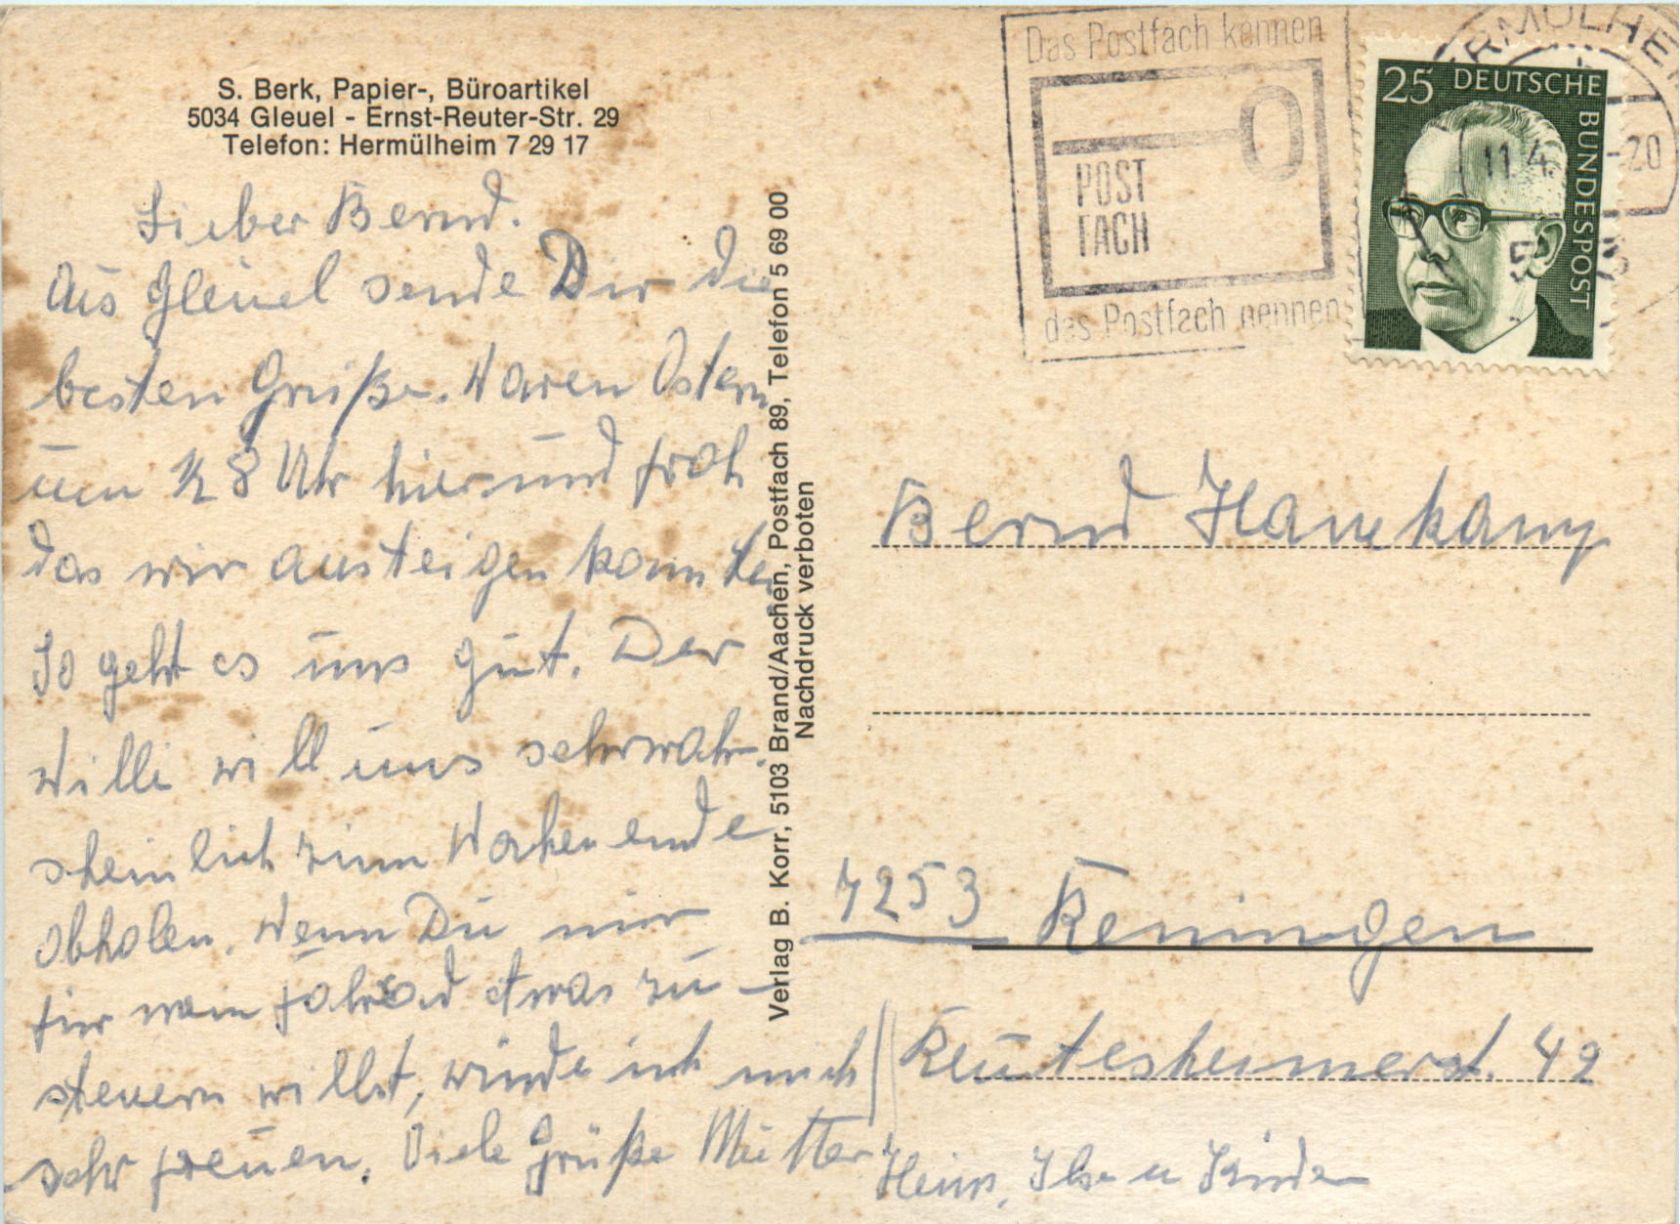 S. Berk, Papier-, Büroartikel
5034 Gleuel - Ernst-Reuter-Str. 29
Telefon: Hermülheim 7 29 17
Lieber Bernd.
Aus Gleuel sende Dir die
besten Grüße. Waren Ostern
um ½ 8 Uhr hier und froh
das wir austeigen konnten
So geht es uns gut. Der
Willi will uns sehrwahr-
sheinlich zum Wochenende
abholen. Wenn Du mir
für mein Fahrad etwas zu-
steuern willst, würde ich mich
sehr freuen. Viele Grüße Mutter
Heinz, Ilse u Kinder
Verlag B. Korr, 5103 Brand/Aachen, Postfach 89, Telefon 5 69 00
Nachdruck verboten
Das Postfach kennen
POST
FACH
das Postfach nennen
25 DEUTSCHE
BUNDESPOST
11.4.
-20
Bernd
7253 Reningen
Reutesheimerst. 42